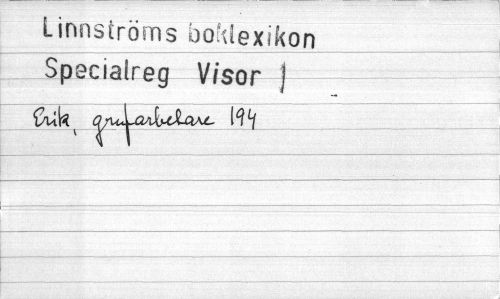 Linnströms boklexikon
Specialreg Visor 1
Erik, grufarbetare 194